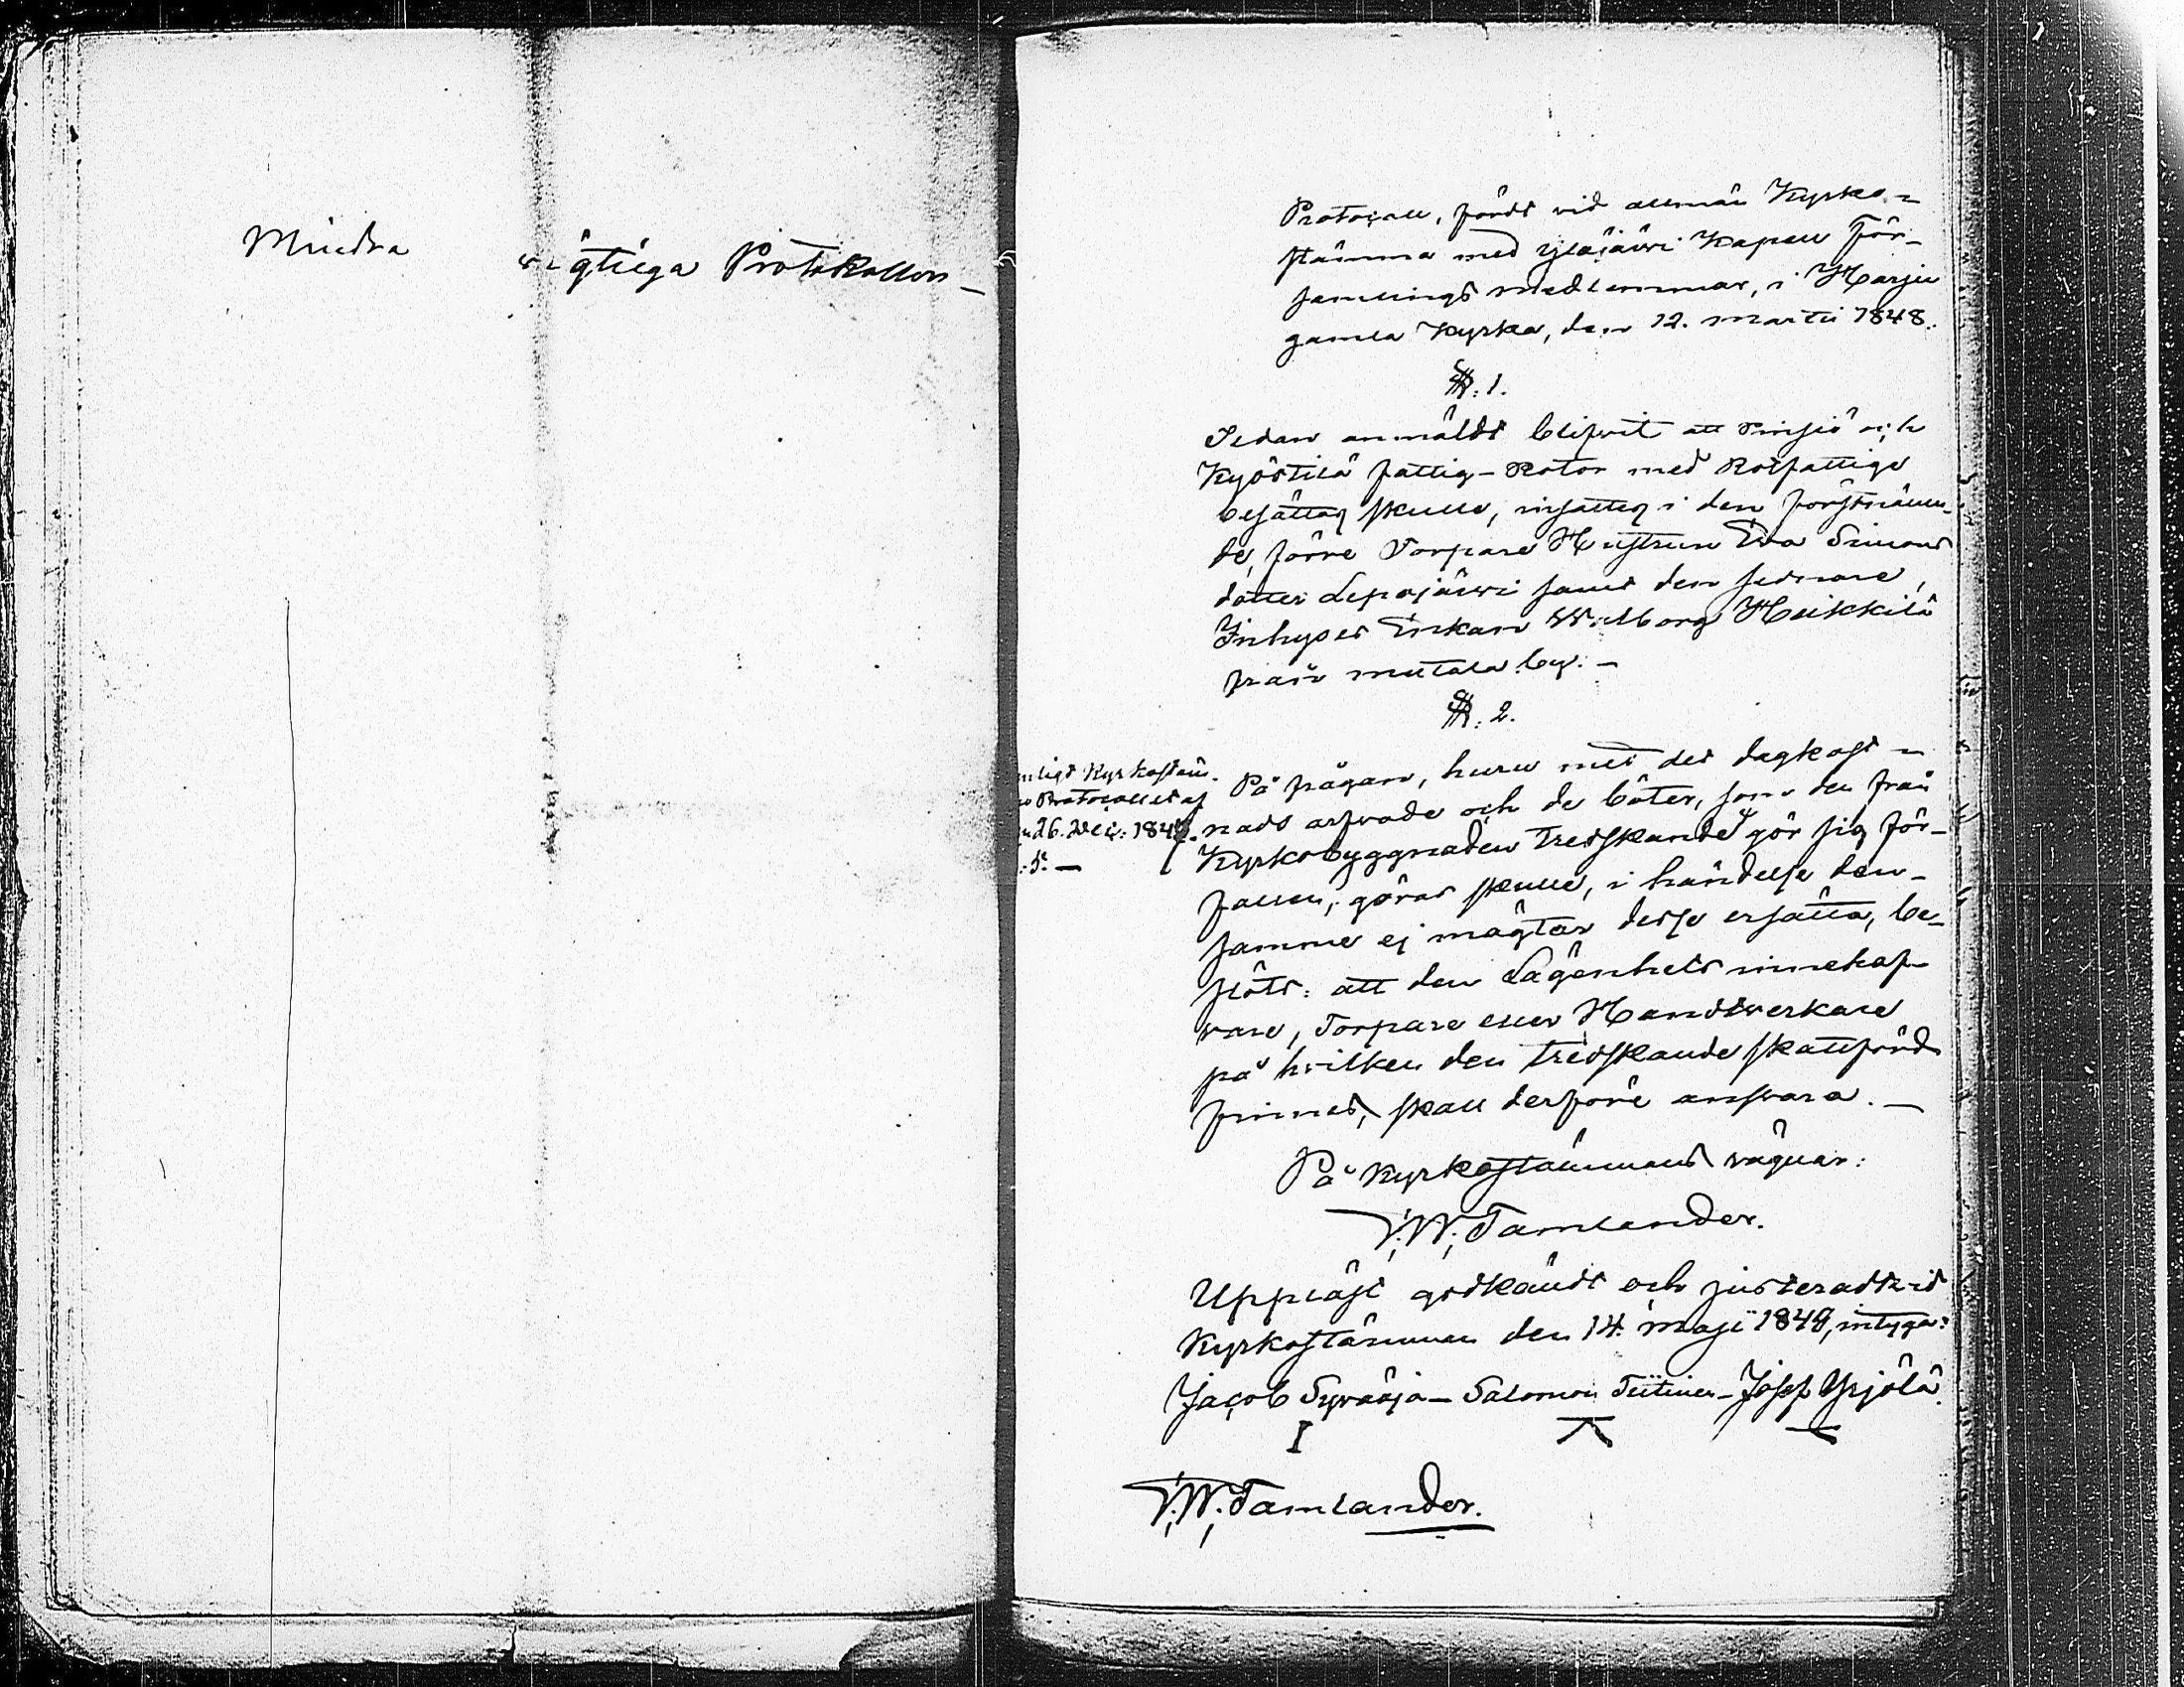 Mindra wigtiga Protokoller_
Protocoll, fördt vid allmän Kyrko=
stämma med Ylöjärvi Kapell för_
samlings medlemmar, i Harju
gamla Kyrka, den 12. Martii 1848.
§: 1.
Sedan anmäldt blifvit att Pinsiö och
Kyöstilä fattig-Rotor med Rotfattige
besättas skulle, insattes i den förstnämn-
de, förre Torpare Hustrun Eva Simons
dotter Lepojärvi samt den sednare,
Inhyses Enkan Walborg Heikkilä
från Mutala by. _
§: 2.
nligt Kyrkostäm.
o Protocollet af
n 26. Dec: 184
: 5. _
På frågan, huru med det dagkost=
nads arfvode och de böter, som den från
Kyrkobyggnaden tredskande gör sig för-
fallen, göras skulle, i händelse den-
samme ej mägtar desse ersätta, be-
slöts: att den Lägenhets innehaf-
vare, Torpare eller Handtverkare
på hvilken den tredskande skattförd
finnes, skall derföre ansvara. _
På Kyrkostämmans vägnar:
V. W. Tamlander.
Uppläst godkändt och justeradt vid
Kyrkostämman den 14. Maji 1848, intyga:
Jacob Syväoja _ Salomon Tiitinen _ Josef Yrjölä.
V. W. Tamlander.